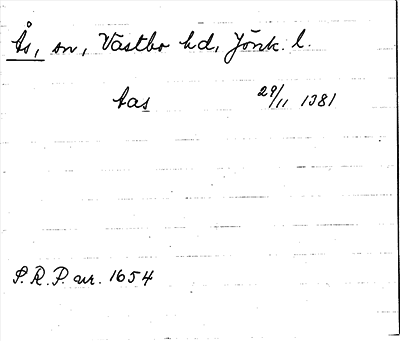 Ås, sn, Västbo hd, Jönk. l.
Aas 29/11 1381
S.R.P. nr. 1654